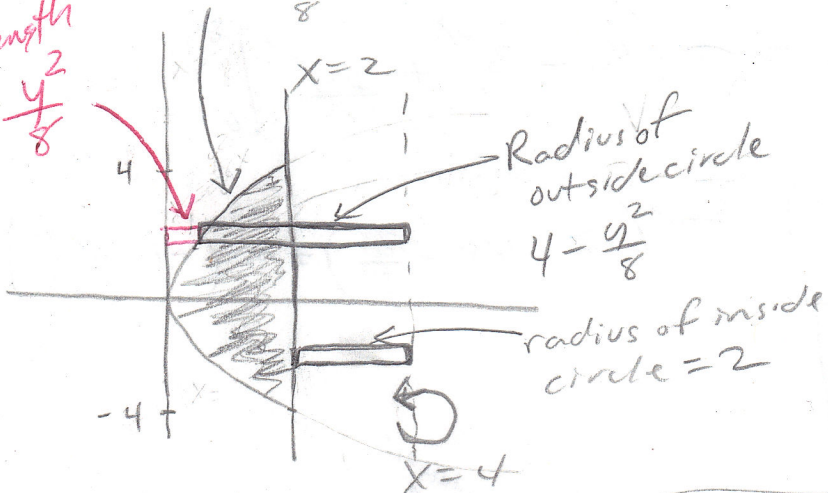 8
x=2
y²/8
4
Radius of
outside circle
4 - y²/8
radius of inside
circle = 2
-4
x=4